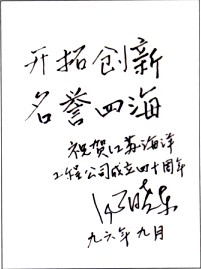 开拓创新
名誉四海
祝贺江苏海洋
工程公司成立四十周年
九六年九月